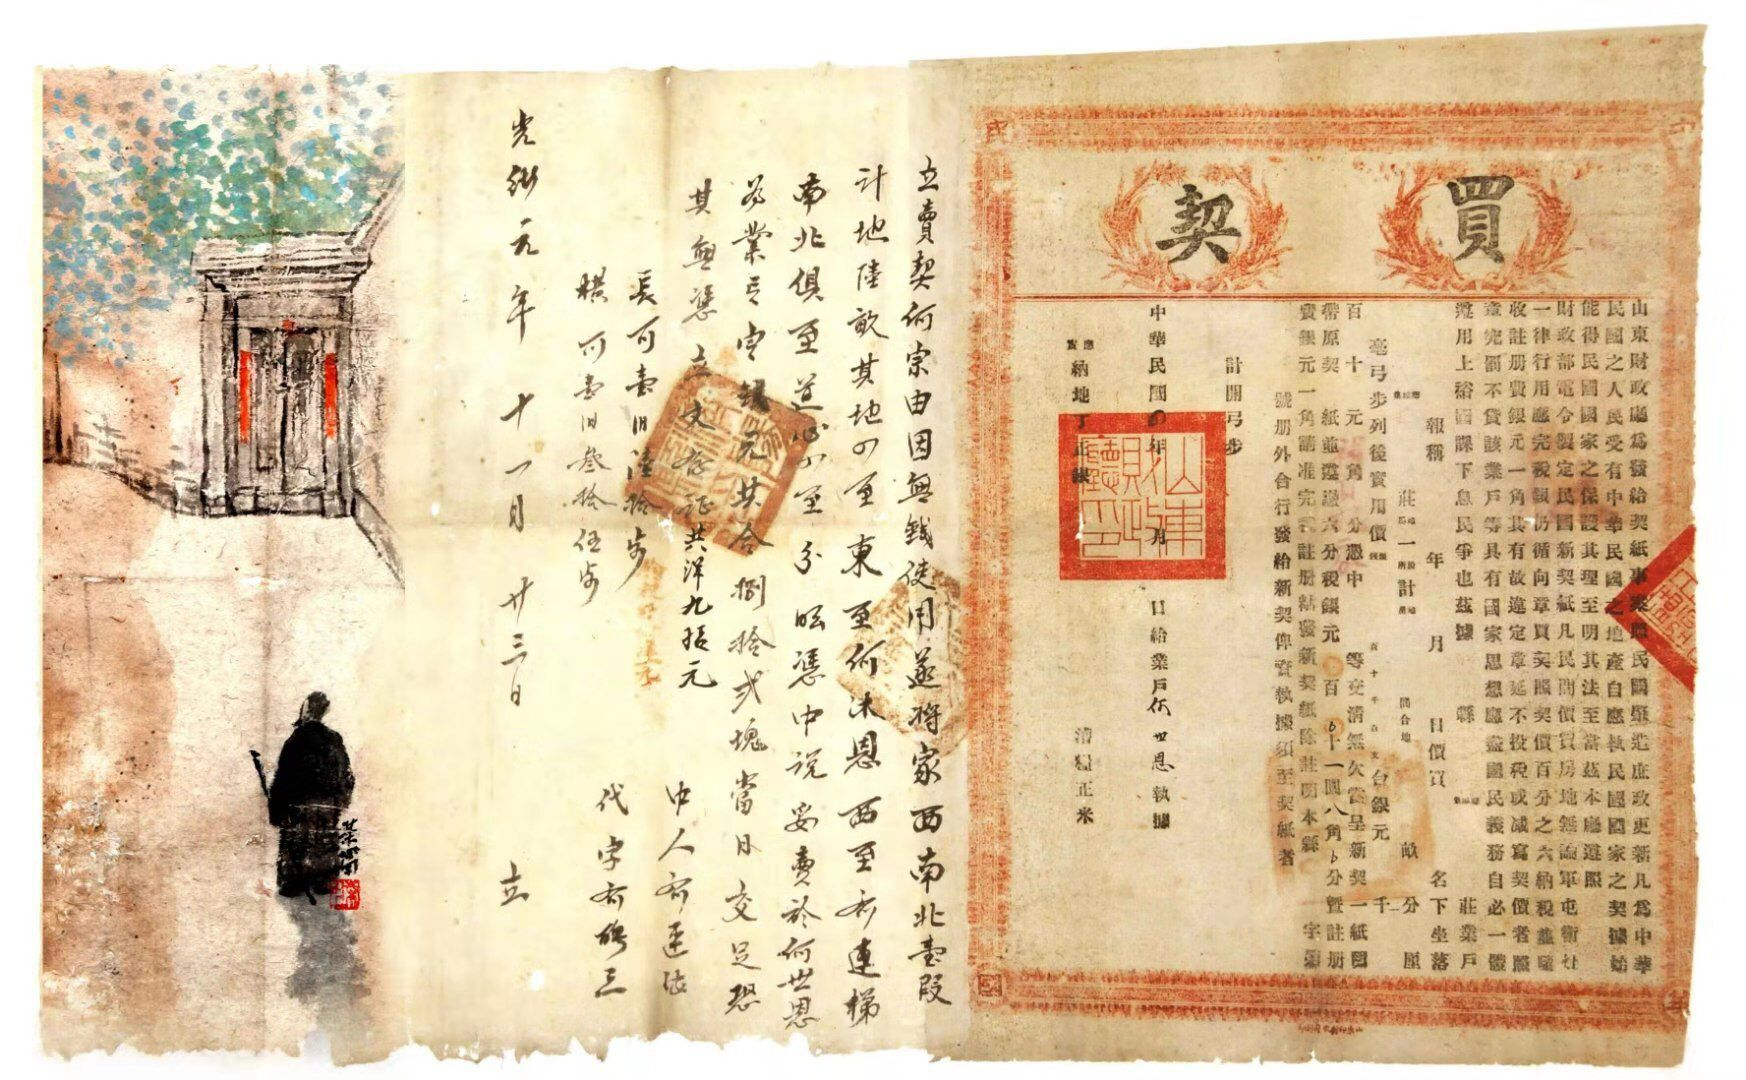 買契
山東財政處為發給契紙事案照民國肇造庶政更新凡為中華
民國之人民受有中華民國之地產自應執民國國家之契據始
能得民國國家之保護其理至明其法至當茲本廳遵照
財政部電令製定民國新契紙凡民間價買房地無論軍屯衛社
一律行用應完稅額仍循向章買契照契價百分之六納稅並隨
收註册費銀元一角其有故違定章延不投稅或減寫契價者照
章究罰不貸該業戶等具有國家思想應盡國民義務自必一體
遵用上裕國課下息民爭也茲據 縣 莊業戶
報稱 年 月 日價買 名下坐落
莊 一 計 畝 分 厘
毫弓步列後實用價 台銀元 千
百 十 元 角 分憑中 等交清無欠當呈新契一紙國
帶原契 紙並遵過六分稅銀元 百 十一圓八角 分暨註册
費銀元一角請准完稅註册粘發新契紙除註明本縣 字第
號册外合行發給新契俾資執據須至契紙者
計開弓步
中華民國 年 月 日給業戶何世恩執據
應 納地丁正銀 漕糧正米
山東財政廳印
立賣契何宗由因無錢使用遂將家西南北壹段
計地陸畝其地四至東至何沐恩西至 連梯
南北俱至道心四至分明憑中説妥賣於何世恩
為業言定銀元共合捌拾弍塊當日交足恐
其無憑立文存証共洋九拾元
長可壹百陸拾步
橫可壹百叁拾伍步
中人
代字
光緒元年十一月廿三日 立